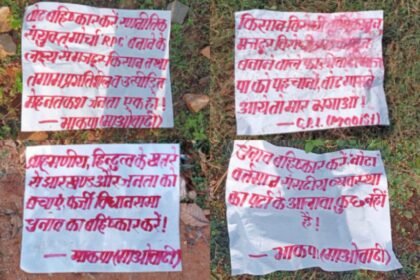 वोट बहिष्कार करें राजनीतिक
संयुक्त मोर्चा RPC बनाने के
लक्ष्य से मजदूर किसान तथा
तमाम प्रगतिशील उत्पीड़ित
मेहनतकश जनता एक हो!
— भाकपा (माओवादी)
किसान विरोधी
मजदूर विरोधी
बनाने वाले
पा को पहचानो, वोट मांगने
आये तो मार भगाओ!
— C.P.I. (माओवादी)
ब्राह्मणीय, हिन्दुत्व के खतरे
से झारखण्ड और जनता को
बचाएं, फर्जी विधानसभा
चुनाव का बहिष्कार करें!
— भाकपा (माओवादी)
चुनाव बहिष्कार करें, नोटा
वर्तमान संसदीय व्यवस्था
के अलावा कुछ नहीं
है!
— भाकपा (माओवादी)